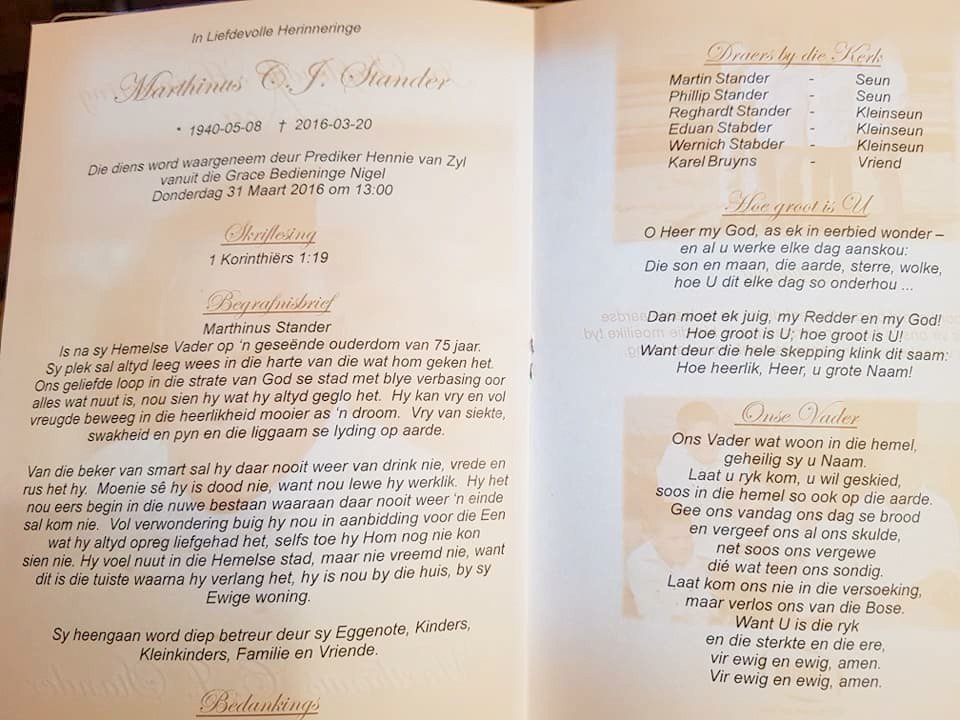 In Liefdevolle Herinneringe
Marthinus C.J. Stander
* 1940-05-08 † 2016-03-20
Die diens word waargeneem deur Prediker Hennie van Zyl
vanuit die Grace Bedieninge Nigel
Donderdag 31 Maart 2016 om 13:00
Skriflesing
1 Korinthiërs 1:19
Begrafnisbrief
Marthinus Stander
Is na sy Hemelse Vader op ‘n geseënde ouderdom van 75 jaar.
Sy plek sal altyd leeg wees in die harte van die wat hom geken het.
Ons geliefde loop in die strate van God se stad met blye verbasing oor
alles wat nuut is, nou sien hy wat hy altyd geglo het. Hy kan vry en vol
vreugde beweeg in die heerlikheid mooier as ‘n droom. Vry van siekte,
swakheid en pyn en die liggaam se lyding op aarde.
Van die beker van smart sal hy daar nooit weer van drink nie, vrede en
rus het hy. Moenie sê hy is dood nie, want nou lewe hy werklik. Hy het
nou eers begin in die nuwe bestaan waaraan daar nooit weer ‘n einde
sal kom nie. Vol verwondering buig hy nou in aanbidding voor die Een
wat hy altyd opreg liefgehad het, selfs toe hy Hom nog nie kon
sien nie. Hy voel nuut in die Hemelse stad, maar nie vreemd nie, want
dit is die tuiste waarna hy verlang het, hy is nou by die huis, by sy
Ewige woning.
Sy heengaan word diep betreur deur sy Eggenote, Kinders,
Kleinkinders, Familie en Vriende.
Bedankings
Draers by die Kerk
Martin Stander - Seun
Phillip Stander - Seun
Reghardt Stander - Kleinseun
Eduan Stabder - Kleinseun
Wernich Stabder - Kleinseun
Karel Bruyns - Vriend
Hoe groot is U
O Heer my God, as ek in eerbied wonder –
en al u werke elke dag aanskou:
Die son en maan, die aarde, sterre, wolke,
hoe U dit elke dag so onderhou ...
Dan moet ek juig, my Redder en my God!
Hoe groot is U; hoe groot is U!
Want deur die hele skepping klink dit saam:
Hoe heerlik, Heer, u grote Naam!
Onse Vader
Ons Vader wat woon in die hemel,
geheilig sy u Naam.
Laat u ryk kom, u wil geskied,
soos in die hemel so ook op die aarde.
Gee ons vandag ons dag se brood
en vergeef ons al ons skulde,
net soos ons vergewe
dié wat teen ons sondig.
Laat kom ons nie in die versoeking,
maar verlos ons van die Bose.
Want U is die ryk
en die sterkte en die ere,
vir ewig en ewig, amen.
Vir ewig en ewig, amen.